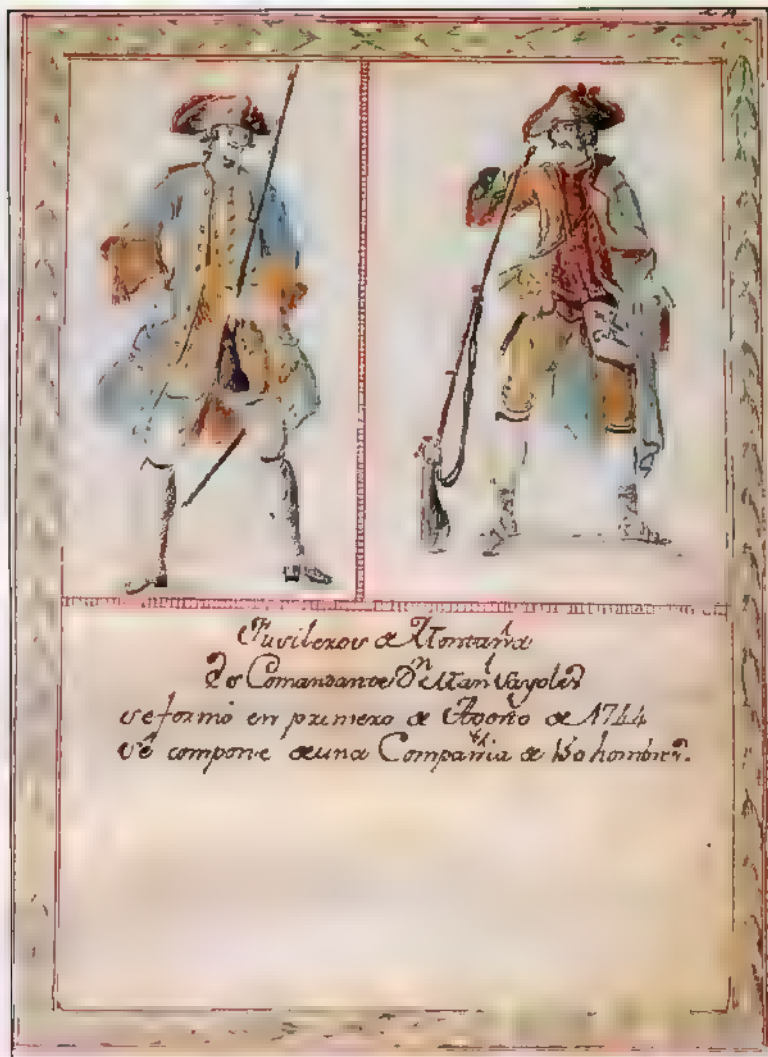 Fusileros de Montaña
Su Comandante Dⁿ
se formó en primero de Agosto de 1744
se compone de una Compañia de 150 hombres.